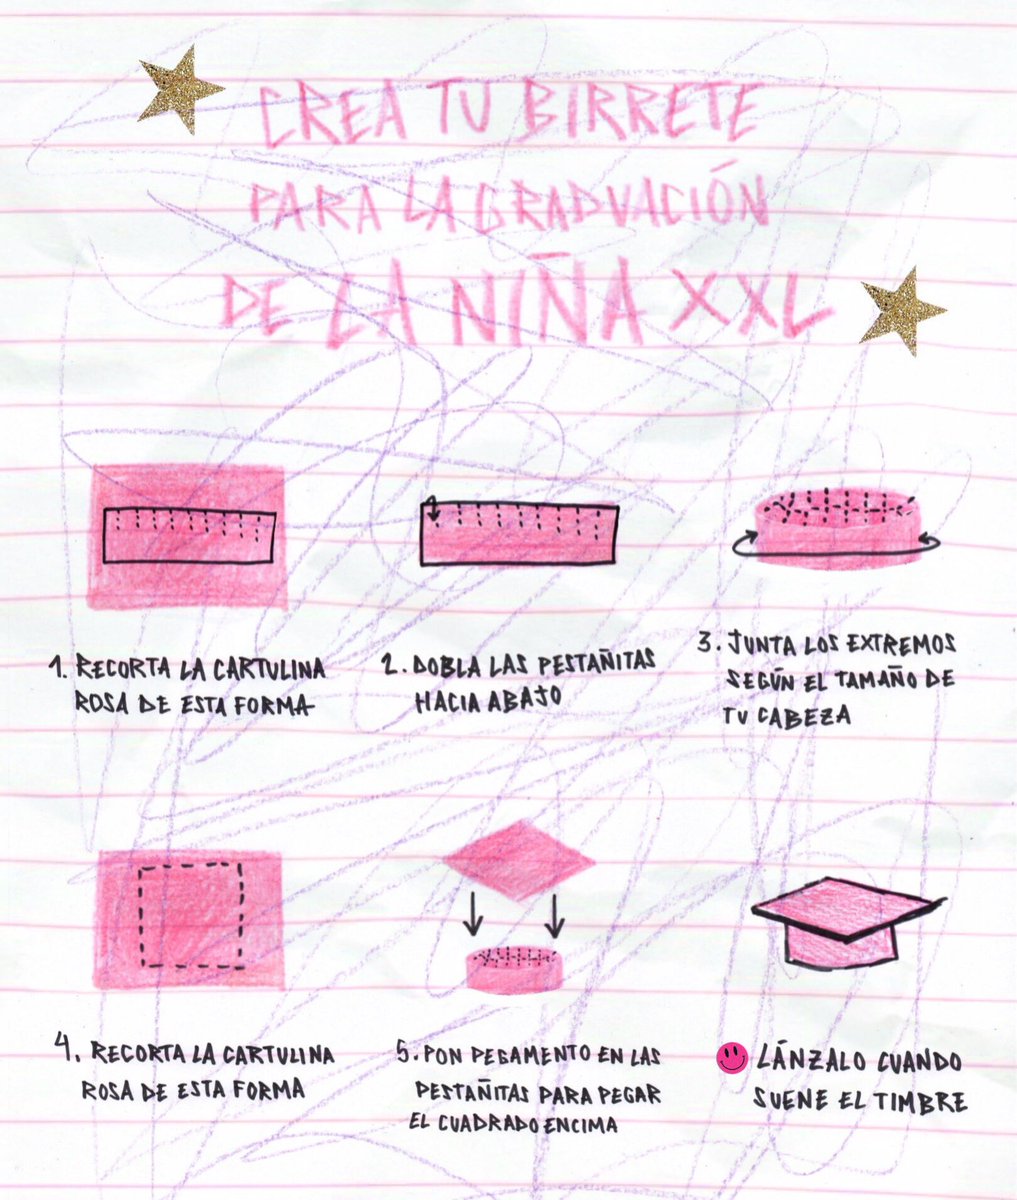 CREA TU BIRRETE
PARA LA GRADUACIÓN
DE LA NIÑA XXL
1. RECORTA LA CARTULINA
ROSA DE ESTA FORMA
2. DOBLA LAS PESTAÑITAS
HACIA ABAJO
3. JUNTA LOS EXTREMOS
SEGÚN EL TAMAÑO DE
TU CABEZA
4. RECORTA LA CARTULINA
ROSA DE ESTA FORMA
5. PON PEGAMENTO EN LAS
PESTAÑITAS PARA PEGAR
EL CUADRADO ENCIMA
LÁNZALO CUANDO
SUENE EL TIMBRE